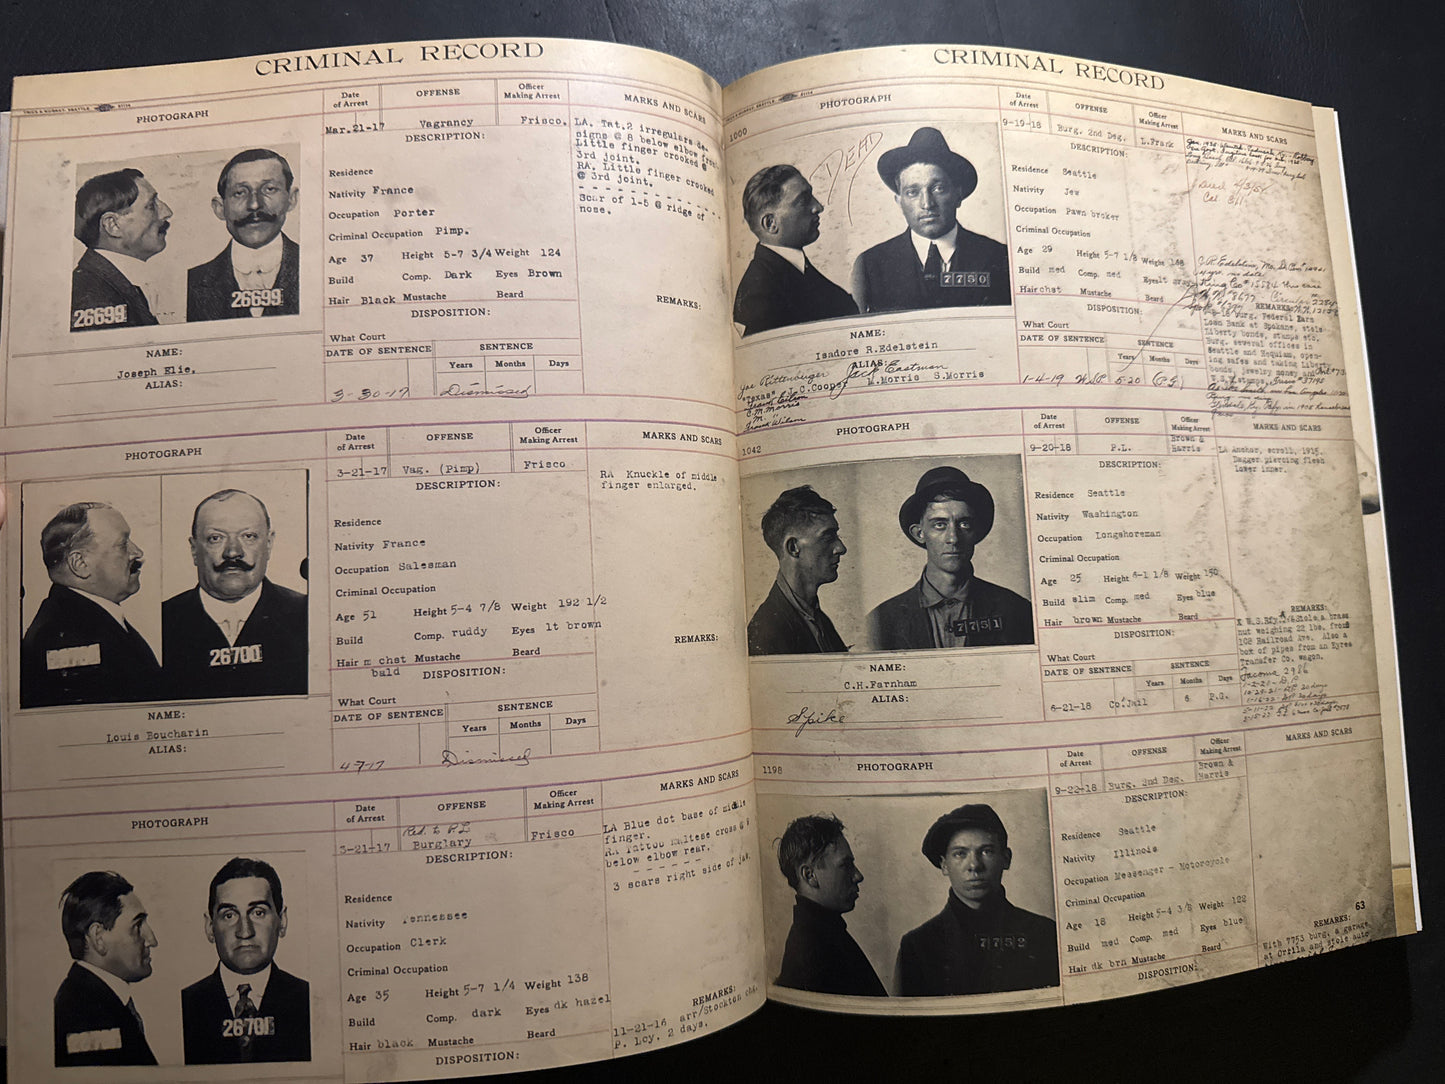 CRIMINAL RECORD
PHOTOGRAPH
Date of Arrest
OFFENSE
Officer Making Arrest
MARKS AND SCARS
Mar.21-17
Vagrancy
Frisco.
DESCRIPTION:
LA. Tat.2 irregulars de-
signs @ 8 below elbow front
Little finger crooked @
3rd joint.
RA. Little finger crooked
@ 3rd joint.
Scar of 1-5 @ ridge of
nose.
Residence
Nativity France
Occupation Porter
Criminal Occupation Pimp.
Age 37 Height 5-7 3/4 Weight 124
Build Comp. Dark Eyes Brown
Hair Black Mustache Beard
REMARKS:
DISPOSITION:
What Court
DATE OF SENTENCE SENTENCE
Years Months Days
3-30-17 Dismissed
26699
26699
NAME:
Joseph Elie.
ALIAS:
PHOTOGRAPH
Date of Arrest
OFFENSE
Officer Making Arrest
MARKS AND SCARS
3-21-17
Vag. (Pimp)
Frisco
DESCRIPTION:
RA Knuckle of middle
finger enlarged.
Residence
Nativity France
Occupation Salesman
Criminal Occupation
Age 51 Height 5-4 7/8 Weight 192 1/2
Build Comp. ruddy Eyes lt brown
Hair m chst Mustache Beard
bald
REMARKS:
DISPOSITION:
What Court
DATE OF SENTENCE SENTENCE
Years Months Days
4-7-17 Dismissed
26700
NAME:
Louis Boucharin
ALIAS:
PHOTOGRAPH
Date of Arrest
OFFENSE
Officer Making Arrest
MARKS AND SCARS
3-21-17
Red. to P.L
Burglary
Frisco
DESCRIPTION:
LA Blue dot base of middle
finger.
RA Tattoo maltese cross @ 6
below elbow rear.
3 scars right side of jaw.
Residence
Nativity Tennessee
Occupation Clerk
Criminal Occupation
Age 35 Height 5-7 1/4 Weight 138
Build Comp. dark Eyes dk hazel
Hair black Mustache Beard
REMARKS:
11-21-16 arr/Stockton chg.
P. Lcy. 2 days.
DISPOSITION:
26701
CRIMINAL RECORD
1000
PHOTOGRAPH
Date of Arrest
OFFENSE
Officer Making Arrest
MARKS AND SCARS
9-19-18
Burg. 2nd Deg.
L.Frank
DESCRIPTION:
DEAD
Died 4/3/54
Cal
Residence Seattle
Nativity Jew
Occupation Pawn broker
Criminal Occupation
Age 29 Height 5-7 1/8 Weight 168
Build med Comp. med Eyes
Hair chst Mustache Beard
King Co # 15584 this case
REMARKS:
Burg. Federal
Loan Bank at Spokane, stole
Liberty bonds, stamps etc.
Burg. several offices in
Seattle and Hoquiam, open-
ing safes and taking Liberty
bonds, jewelry money and
stamps.
DISPOSITION:
What Court
DATE OF SENTENCE SENTENCE
Years Months Days
1-4-19 W.S.P. 5-20 (P.G.)
7750
NAME:
Isadore R.Edelstein
ALIAS:
Joe Rittenburger Jack Eastman
"Texas" J.C.Cooper M.Morris S.Morris
E.M. Morris
Frank Wilson
1042
PHOTOGRAPH
Date of Arrest
OFFENSE
Officer Making Arrest
MARKS AND SCARS
9-20-18
P.L.
Brown & Harris
DESCRIPTION:
LA Anchor, scroll, 1915.
Dagger piercing flesh
lower inner.
Residence Seattle
Nativity Washington
Occupation Longshoreman
Criminal Occupation
Age 25 Height 6-1 1/8 Weight 150
Build slim Comp. med Eyes blue
Hair brown Mustache Beard
REMARKS:
Stole a brass
nut weighing 22 lbs. from
108 Railroad Ave. Also a
box of pipes from an Eyres
Transfer Co. wagon.
Tacoma 2986
DISPOSITION:
What Court
DATE OF SENTENCE SENTENCE
Years Months Days
6-21-18 Co.Jail 6 P.G.
7751
NAME:
C.H.Farnham
ALIAS:
Spike
1198
PHOTOGRAPH
Date of Arrest
OFFENSE
Officer Making Arrest
MARKS AND SCARS
9-22-18
Burg. 2nd Deg.
Brown & Harris
DESCRIPTION:
Residence Seattle
Nativity Illinois
Occupation Messenger - Motorcycle
Criminal Occupation
Age 18 Height 5-4 3/8 Weight 122
Build med Comp. med Eyes blue
Hair dk brn Mustache Beard
63
REMARKS:
With 7753 burg. a garage
at Orrila and stole auto
DISPOSITION:
7752